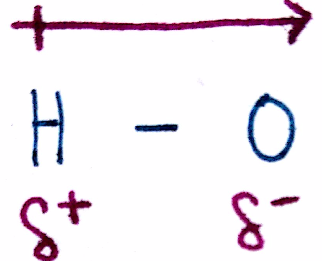 H – O
δ+ δ-